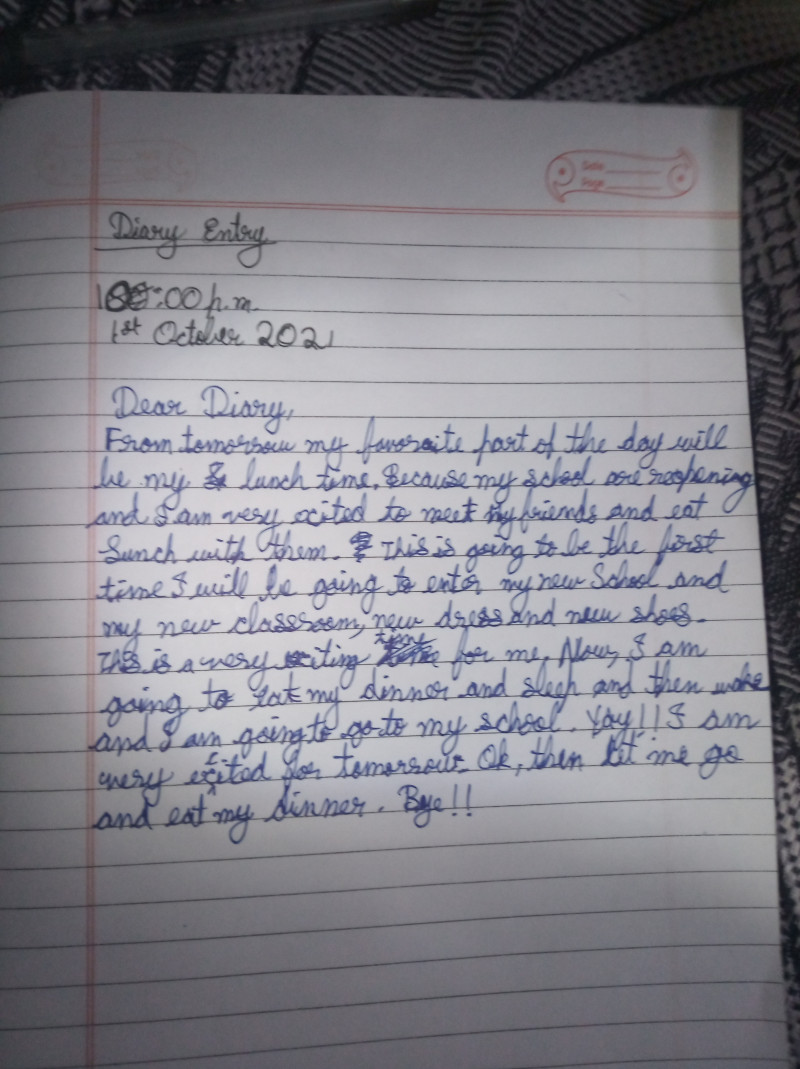 Date
Page
Diary Entry
:00 p.m.
1st October 2021
Dear Diary,
From tomorrow my favoraite part of the day will
be my lunch time. Because my school are reopening
and I am very excited to meet my friends and eat
lunch with them. This is going to be the first
time I will be going to enter my new School and
my new classroom, new dress and new shoes.
This is a very exiting time for me. Now, I am
going to eat my dinner and sleep and then wake
and I am going to go to my school. Yay!! I am
very excited for tomorrow. Ok, then let me go
and eat my dinner. Bye!!